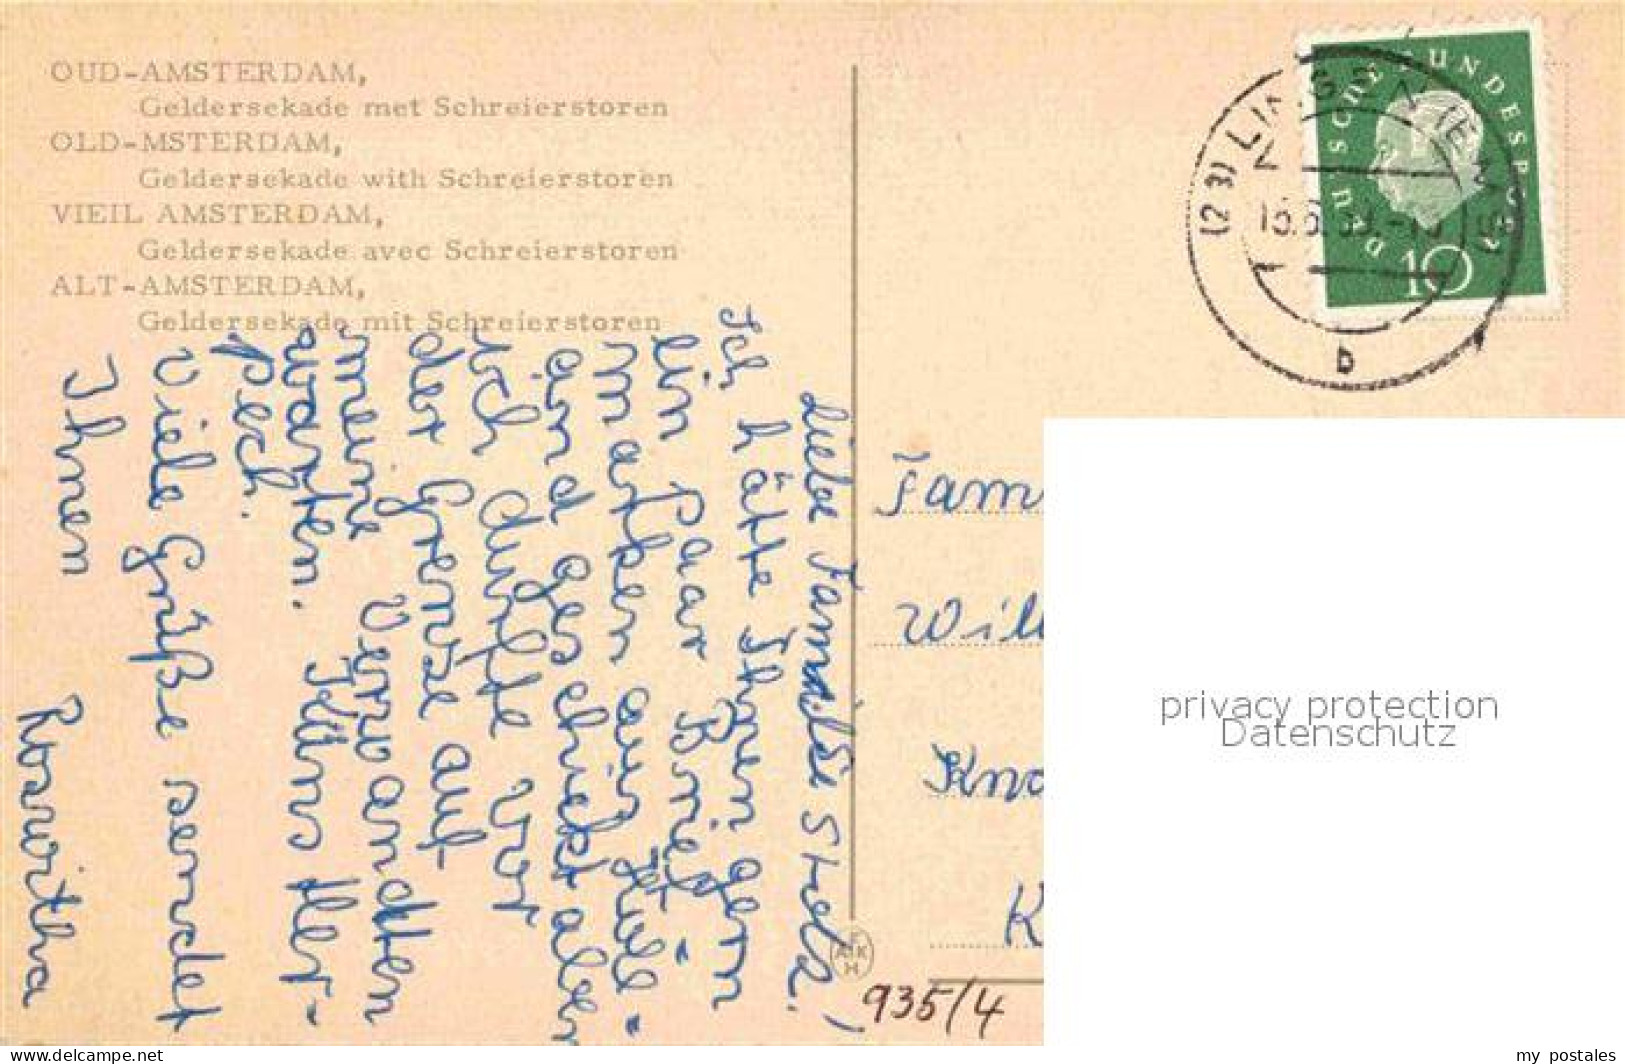 OUD-AMSTERDAM,
Geldersekade met Schreierstoren
OLD-MSTERDAM,
Geldersekade with Schreierstoren
VIEIL AMSTERDAM,
Geldersekade avec Schreierstoren
ALT-AMSTERDAM,
Geldersekade mit Schreierstoren
Liebe Familie
Ich hätte Ihnen gern
ein paar Brief-
marken aus
and geschickt aber
ich durfte vor
der Grenze auf
meine Verwandten
warten.
Pech.
Viele Grüße sendet
Ihnen Roswitha
DEUTSCHE BUNDESPOST
10
(23)
b
Fam
Will
Kno
K
FAKH
935/4
privacy protection
Datenschutz
https://www.delcampe.net
my_postales